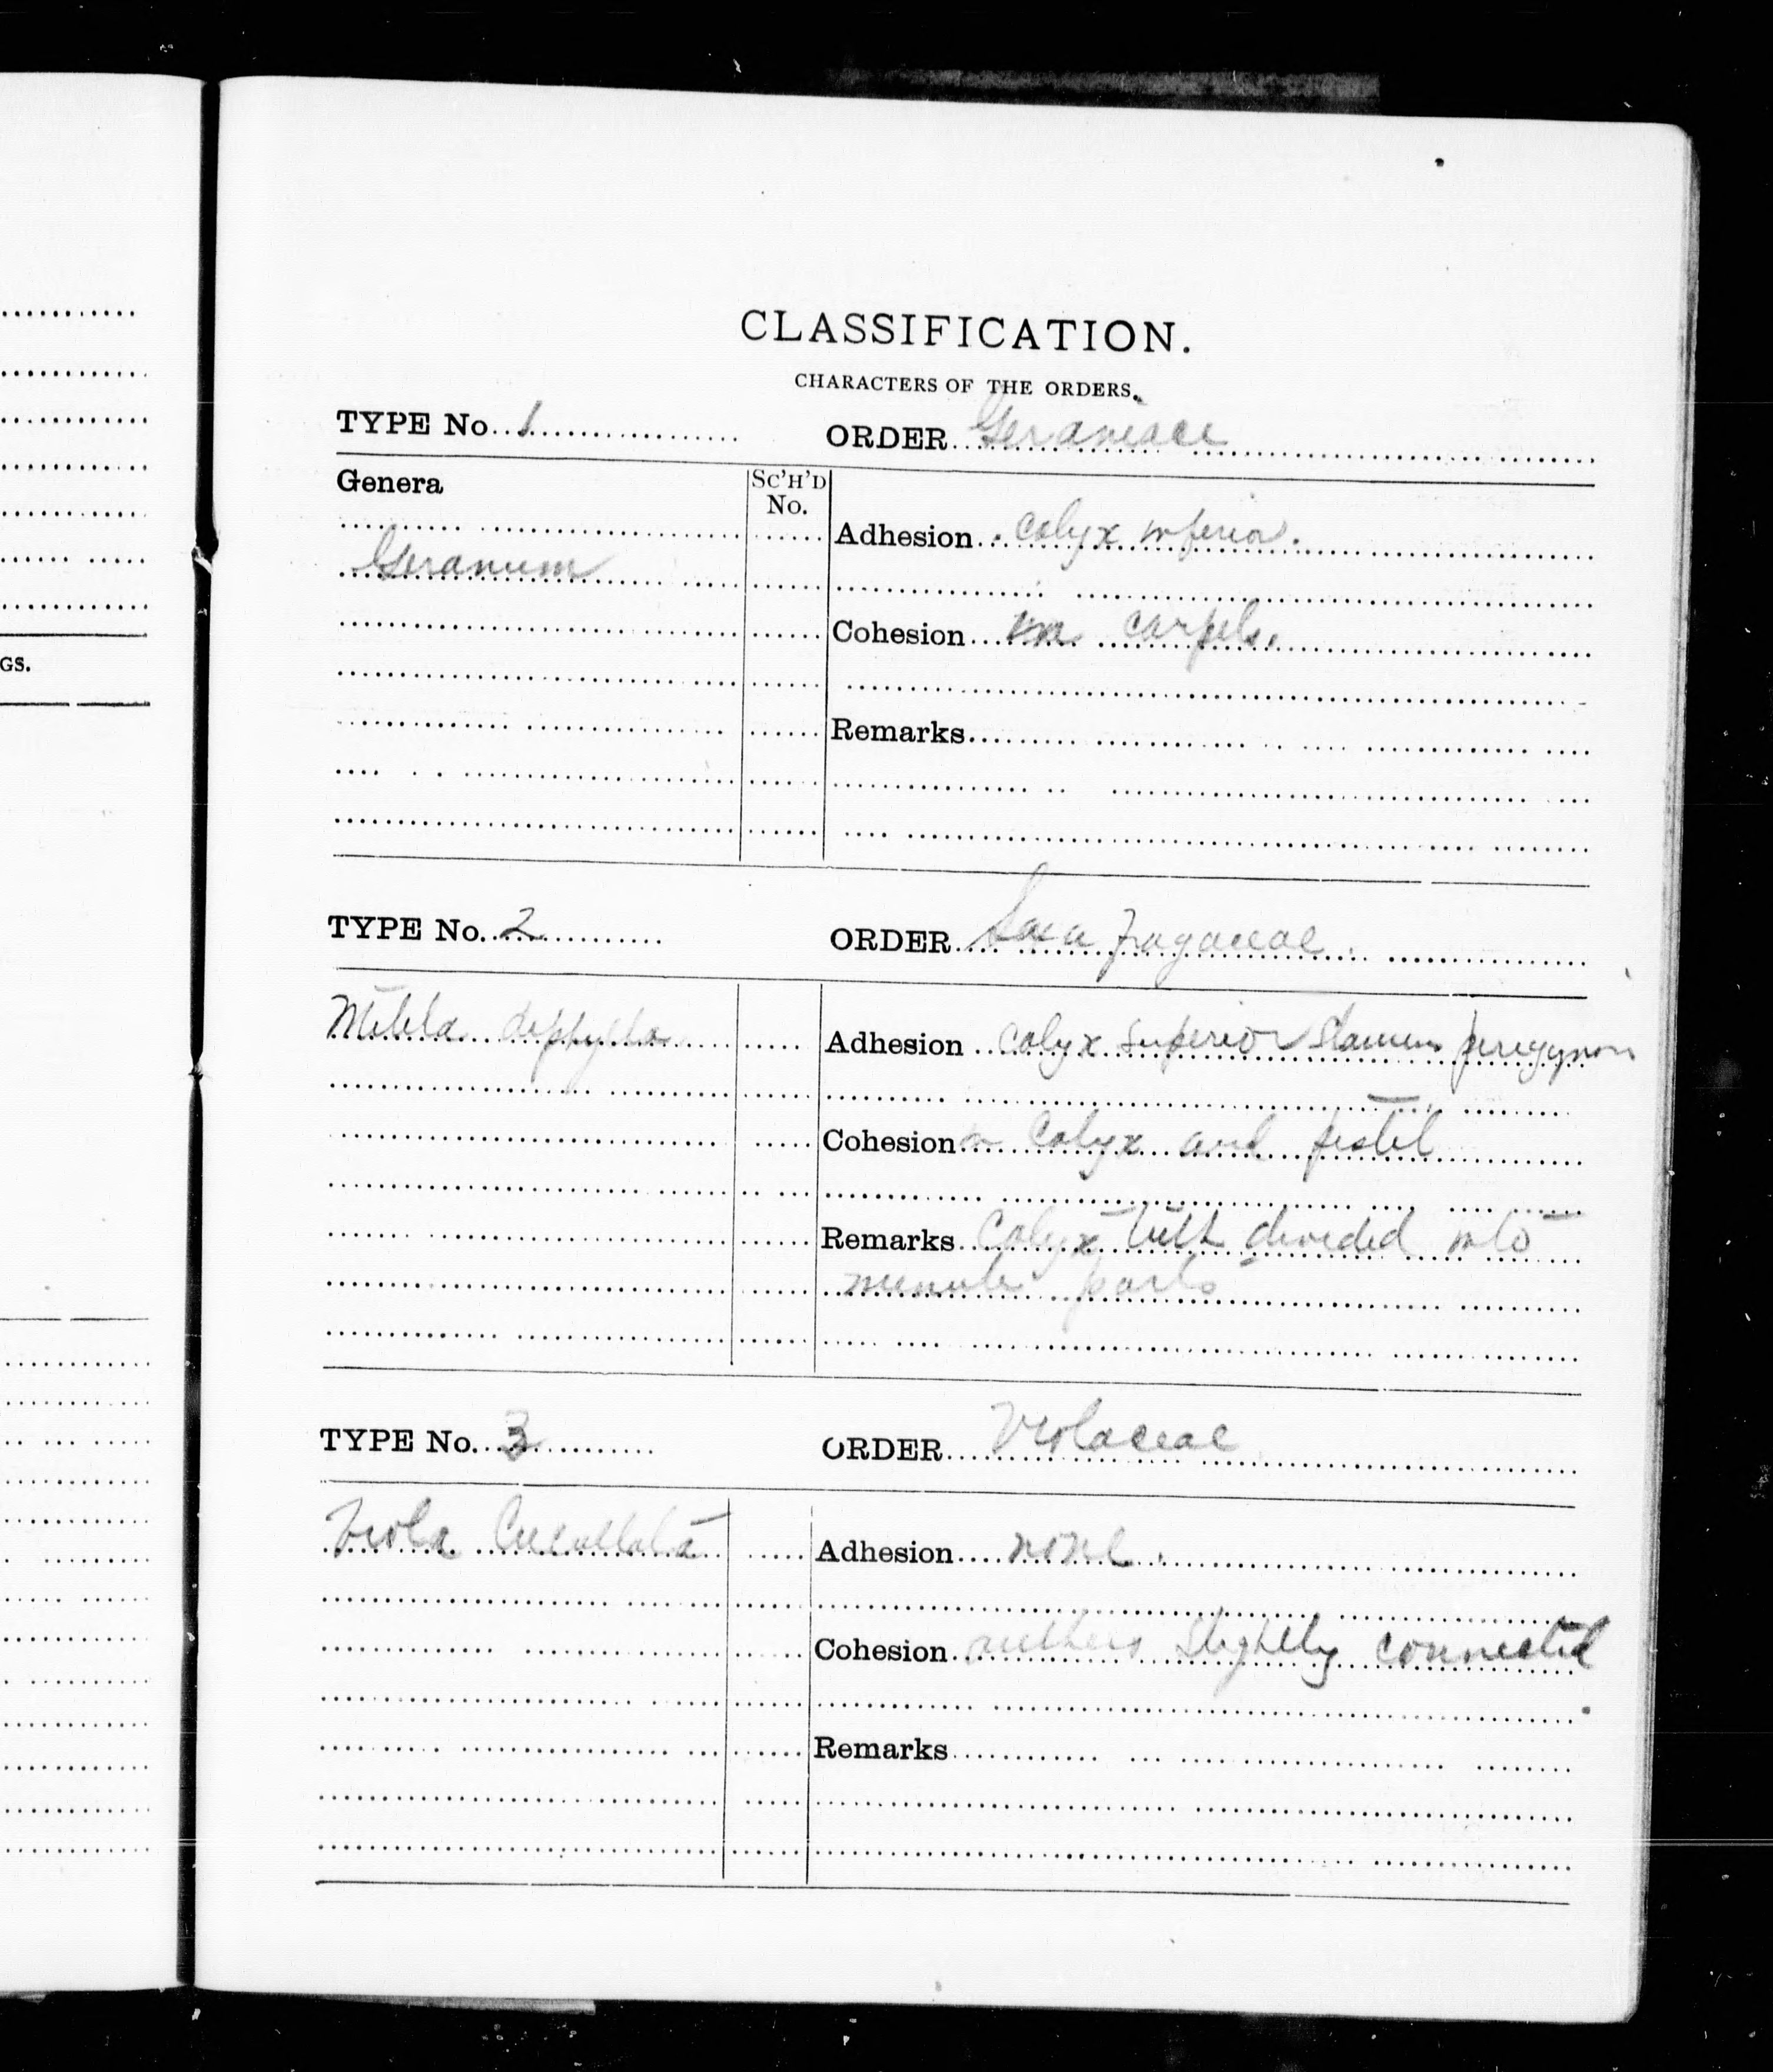 CLASSIFICATION.
CHARACTERS OF THE ORDERS.
TYPE No. 1 ORDER Geraniace
Genera SC'H'D No.
Adhesion calyx inferior.
Geranium
Cohesion in carpels.
Remarks
TYPE No. 2 ORDER Saxifragaceae
Mitella diphylla Adhesion Calyx superior Stamens perigynous
Cohesion in Calyx and pistil
Remarks Calyx divided into
minute parts
TYPE No. 3 ORDER Violaceae
Viola Cucullata Adhesion none.
Cohesion anthers slightly connected
Remarks
GS.